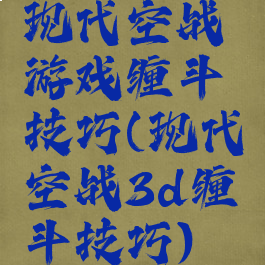 现代空战
游戏缠斗
技巧(现代
空战3d缠
斗技巧)